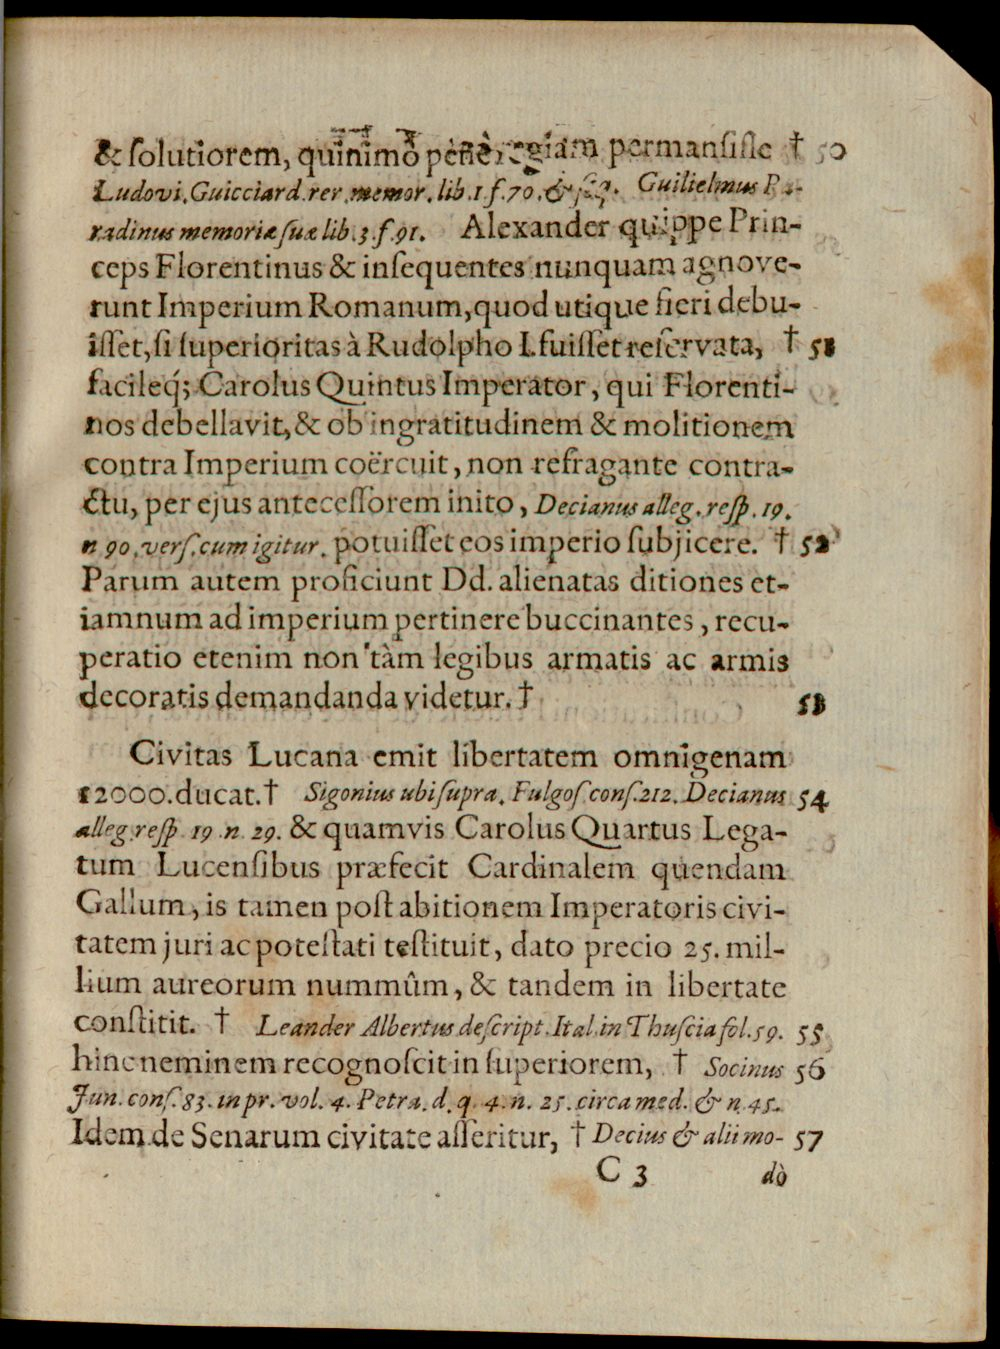 & ſolutiorem, quinimò penè regiam permanſiſſe † 50
Ludovi. Guicciard. rer. memor. lib. 1 f. 70. & ſeq. Guilielmus Pa-
radinus memoriæ ſuæ lib. 3. f. 91. Alexander quippe Prin-
ceps Florentinus & inſequentes nunquam agnove-
runt Imperium Romanum, quod utique fieri debu-
iſſet, ſi ſuperioritas à Rudolpho I. fuiſſet reſervata, † 51
facileq́; Carolus Quintus Imperator, qui Florenti-
nos debellavit, & ob ingratitudinem & molitionem
contra Imperium coërcuit, non refragante contra-
ctu, per ejus anteceſſorem inito, Decianus alleg. reſp. 19.
n 90. verſ. cum igitur. potuiſſet eos imperio ſubjicere. † 52
Parum autem proficiunt Dd. alienatas ditiones et-
iamnum ad imperium pertinere buccinantes, recu-
peratio etenim non tàm legibus armatis ac armis
decoratis demandanda videtur. † 53
Civitas Lucana emit libertatem omnigenam
12000. ducat. † Sigonius ubi ſupra. Fulgoſ. conſ. 212. Decianus 54
alleg. reſp 19 n. 29. & quamvis Carolus Quartus Lega-
tum Lucenſibus præfecit Cardinalem quendam
Gallum, is tamen poſt abitionem Imperatoris civi-
tatem juri ac poteſtati teſtituit, dato precio 25. mil-
lium aureorum nummûm, & tandem in libertate
conſtitit. † Leander Albertus deſcript. Ital. in Thuſcia fol. 59. 55
hinc neminem recognoſcit in ſuperiorem, † Socinus 56
Jun. conſ. 83. in pr. vol. 4. Petra. d. q. 4. n. 25. circa med. & n. 45.
Idem de Senarum civitate aſſeritur, † Decius & alii mo- 57
C 3 dò